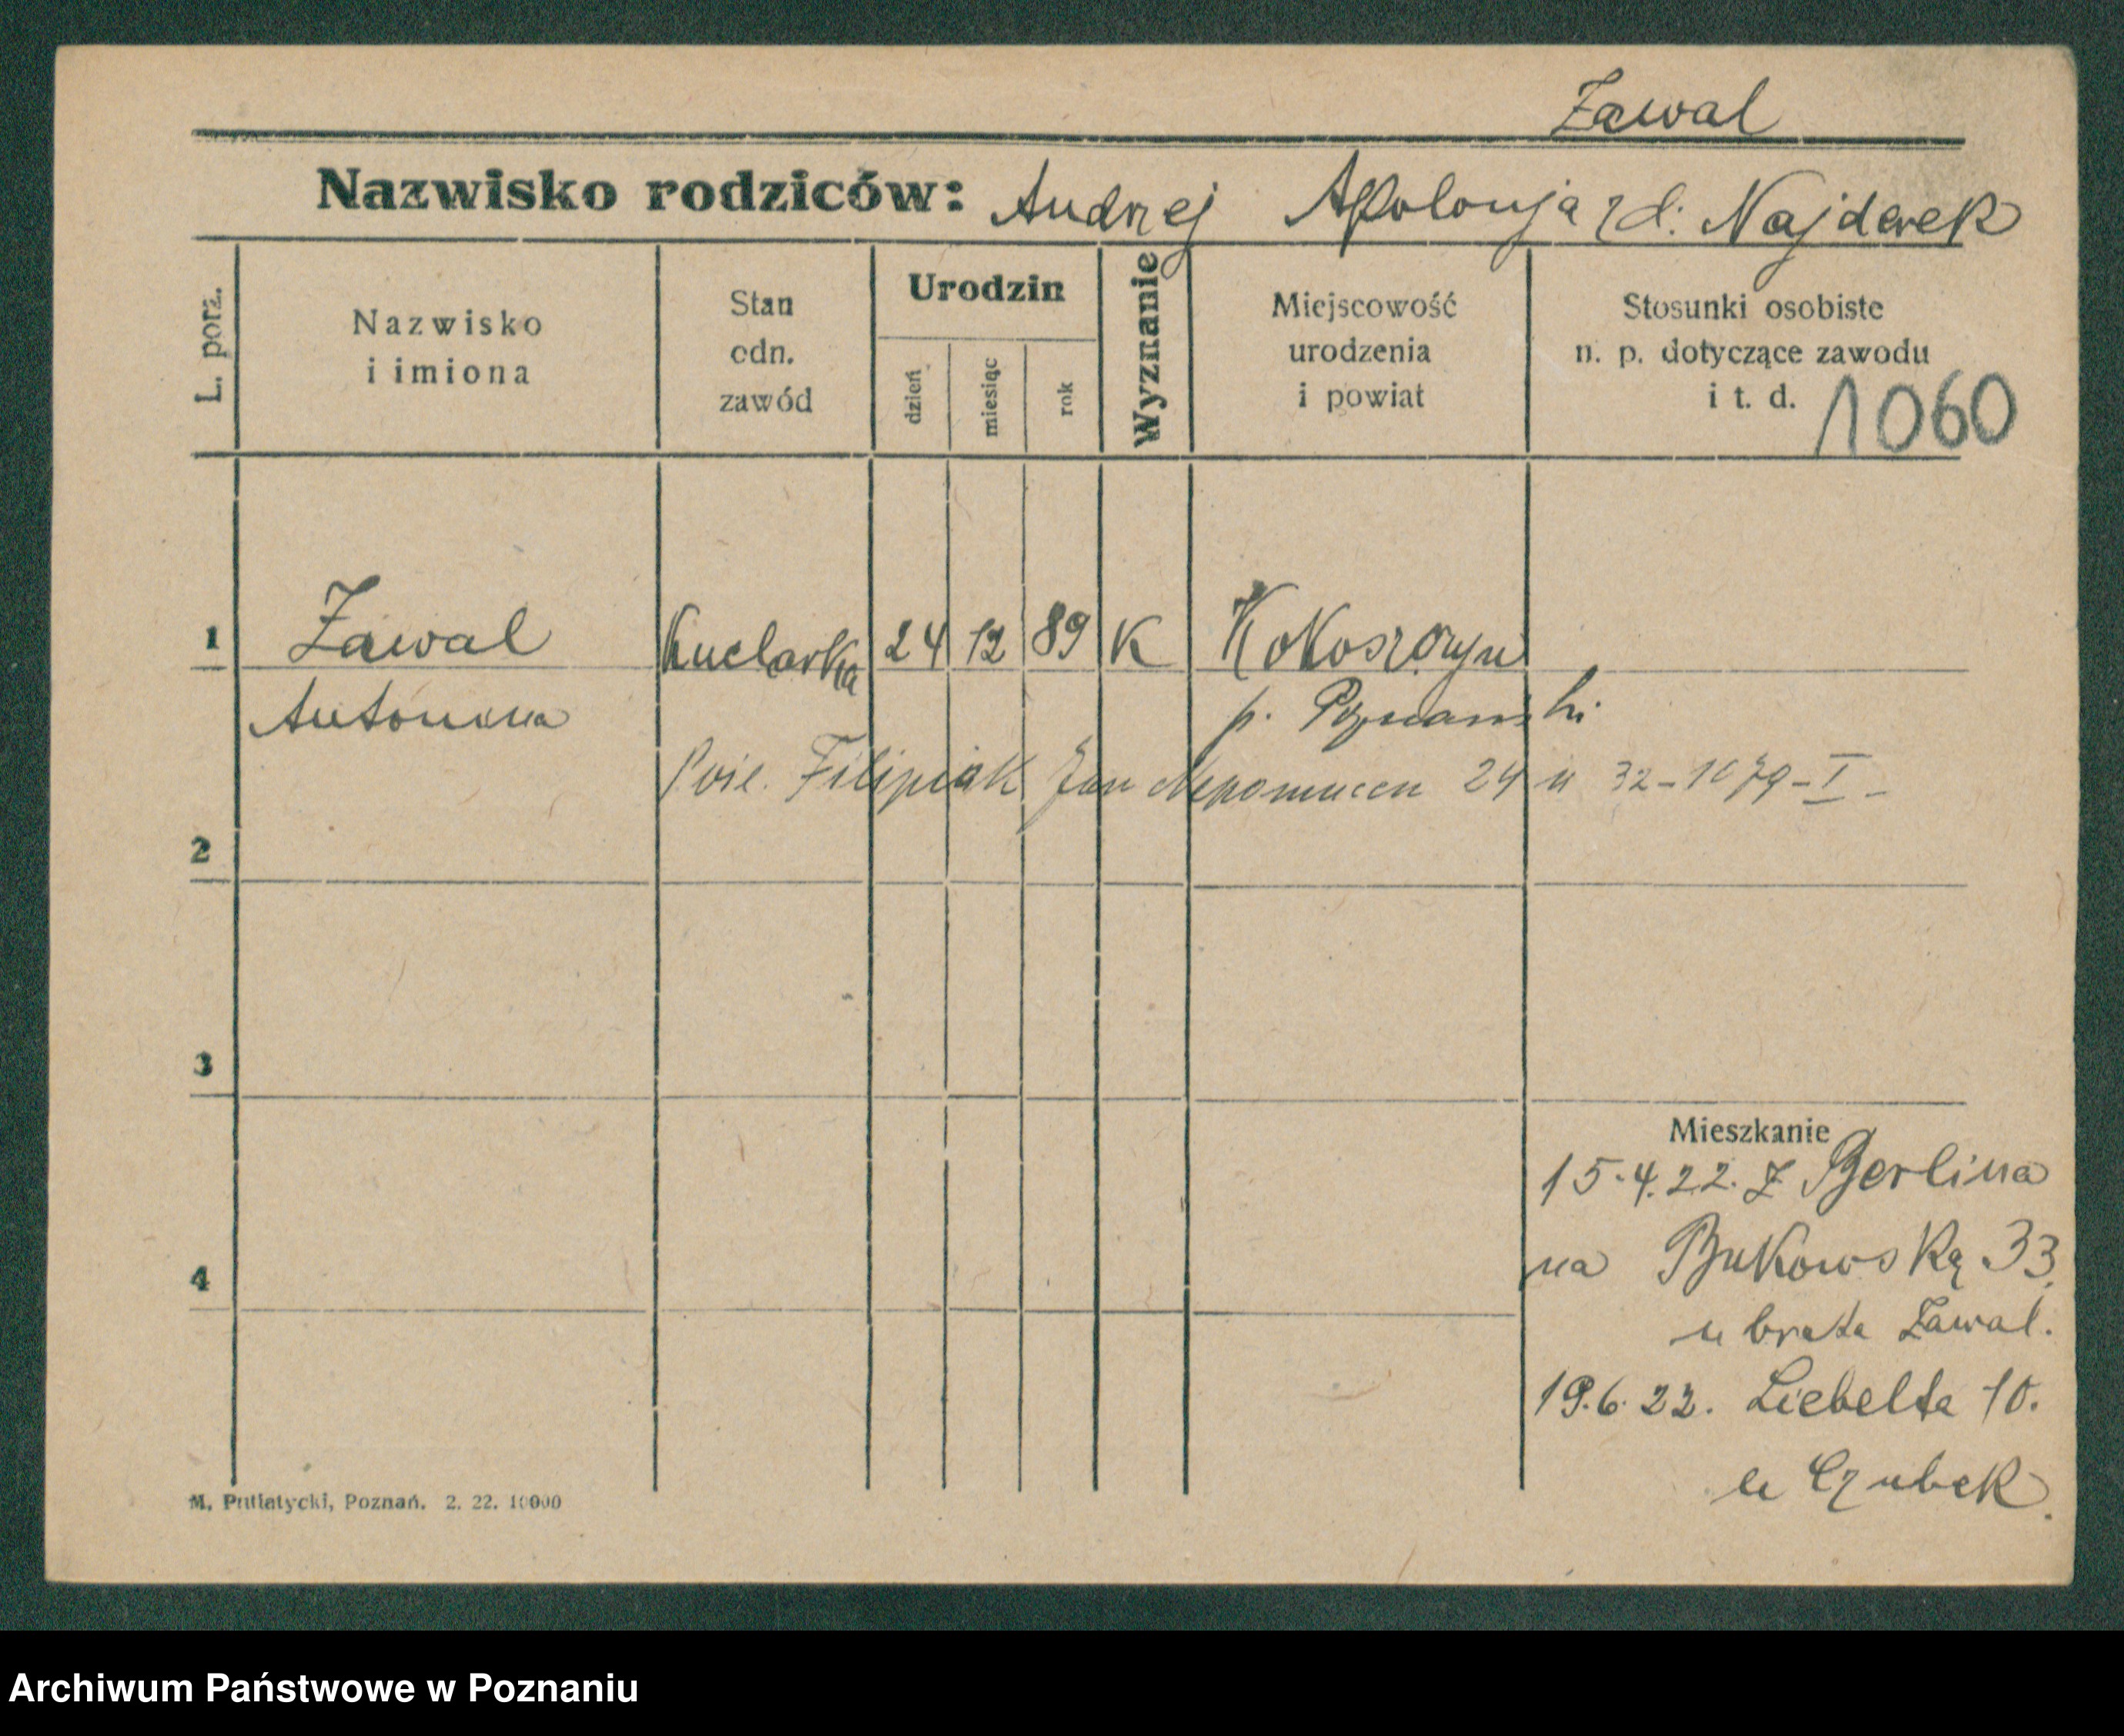 Zawal
Nazwisko rodziców: Andrzej Apolonja zd: Najderek
L. porz.
Nazwisko
i imiona
Stan
odn.
zawód
Urodzin
dzień
miesiąc
rok
Wyznanie
Miejscowość
urodzenia
i powiat
Stosunki osobiste
n. p. dotyczące zawodu
i t. d. 1060
1 Zawal Kucharka 24 12 89 K Kokoszczyn
Antonina p. Poznański
Filipiak Jan Nepomucen 24 11 32 - 1079 - I -
2
3
Mieszkanie
15.4.22. Z Berlina
4
na Bukowską 33.
u brata Zawal.
19.6.22. Liebelta 10.
u Czubek.
M. Putiatycki, Poznań. 2. 22. 10000
Archiwum Państwowe w Poznaniu